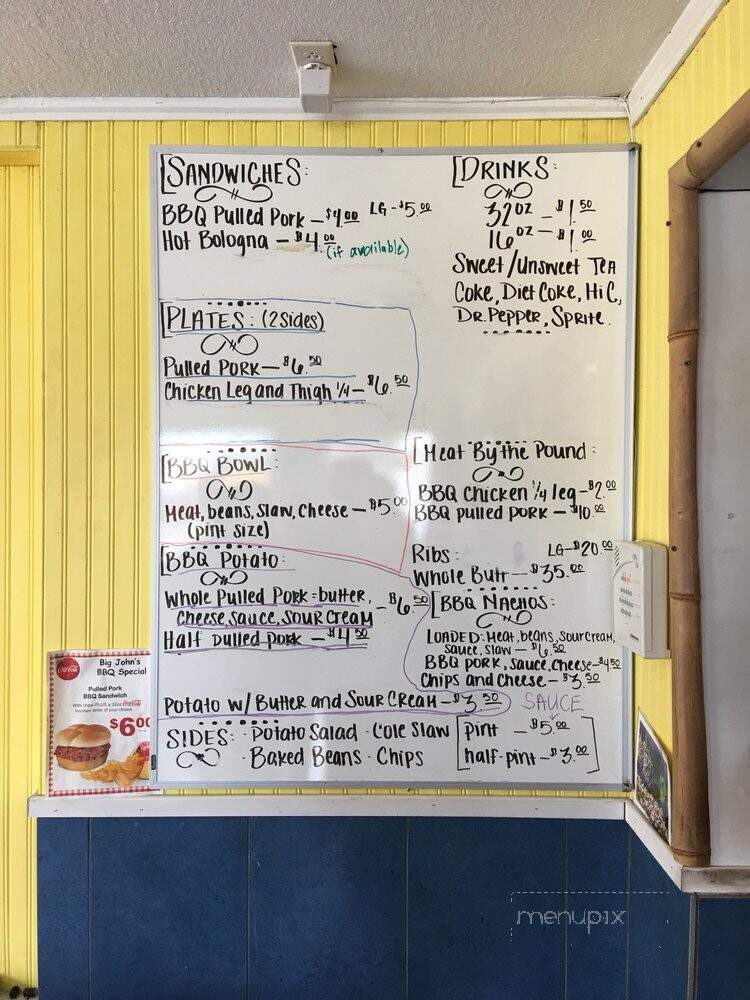 SANDWICHES:
BBQ Pulled Pork – $4.00 LG – $5.00
Hot Bologna – $4.00
(if available)
DRINKS:
32oz – $1.50
16oz – $1.00
Sweet/Unsweet Tea
Coke, Diet Coke, HiC,
Dr. Pepper, Sprite.
PLATES: (2 Sides)
Pulled Pork – $6.50
Chicken Leg and Thigh 1/4 – $6.50
BBQ BOWL:
Meat, beans, slaw, cheese – $5.00
(pint size)
Meat By the Pound:
BBQ chicken 1/4 leg – $2.00
BBQ pulled pork – $10.00
Ribs: LG – $20.00
Whole Butt – $35.00
BBQ Potato:
Whole Pulled Pork = butter,
cheese, sauce, sour cream – $6.50
Half Pulled pork – $4.50
Potato w/ Butter and Sour Cream – $3.50
BBQ Nachos:
Loaded: Meat, beans, sour cream,
sauce, slaw – $6.50
BBQ pork, sauce, cheese – $4.50
Chips and Cheese – $3.50
SIDES: · Potato Salad · Cole Slaw
· Baked Beans · Chips
SAUCE
pint – $5.00
half-pint – $3.00
Coca-Cola
Big John's
BBQ Special
Pulled Pork
BBQ Sandwich
With chips PLUS a 32oz Coca-Cola
fountain drink of your choice
$6.00
menupix